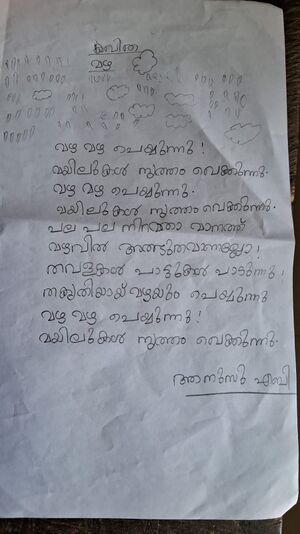 കവിത
മഴ
മഴ മഴ പെയ്യുന്നു!
മയിലുകൾ നൃത്തം വെക്കുന്നു.
മഴ മഴ പെയ്യുന്നു.
മയിലുകൾ നൃത്തം വെക്കുന്നു.
പല പല നിറത്താ വാനത്ത്
മഴവിൽ
തവളകൾ പാട്ടുകൾ പാടുന്നു!
മഴയും പെയ്യുന്നു
മഴ മഴ പെയ്യുന്നു!
മയിലുകൾ നൃത്തം വെക്കുന്നു.
എബി